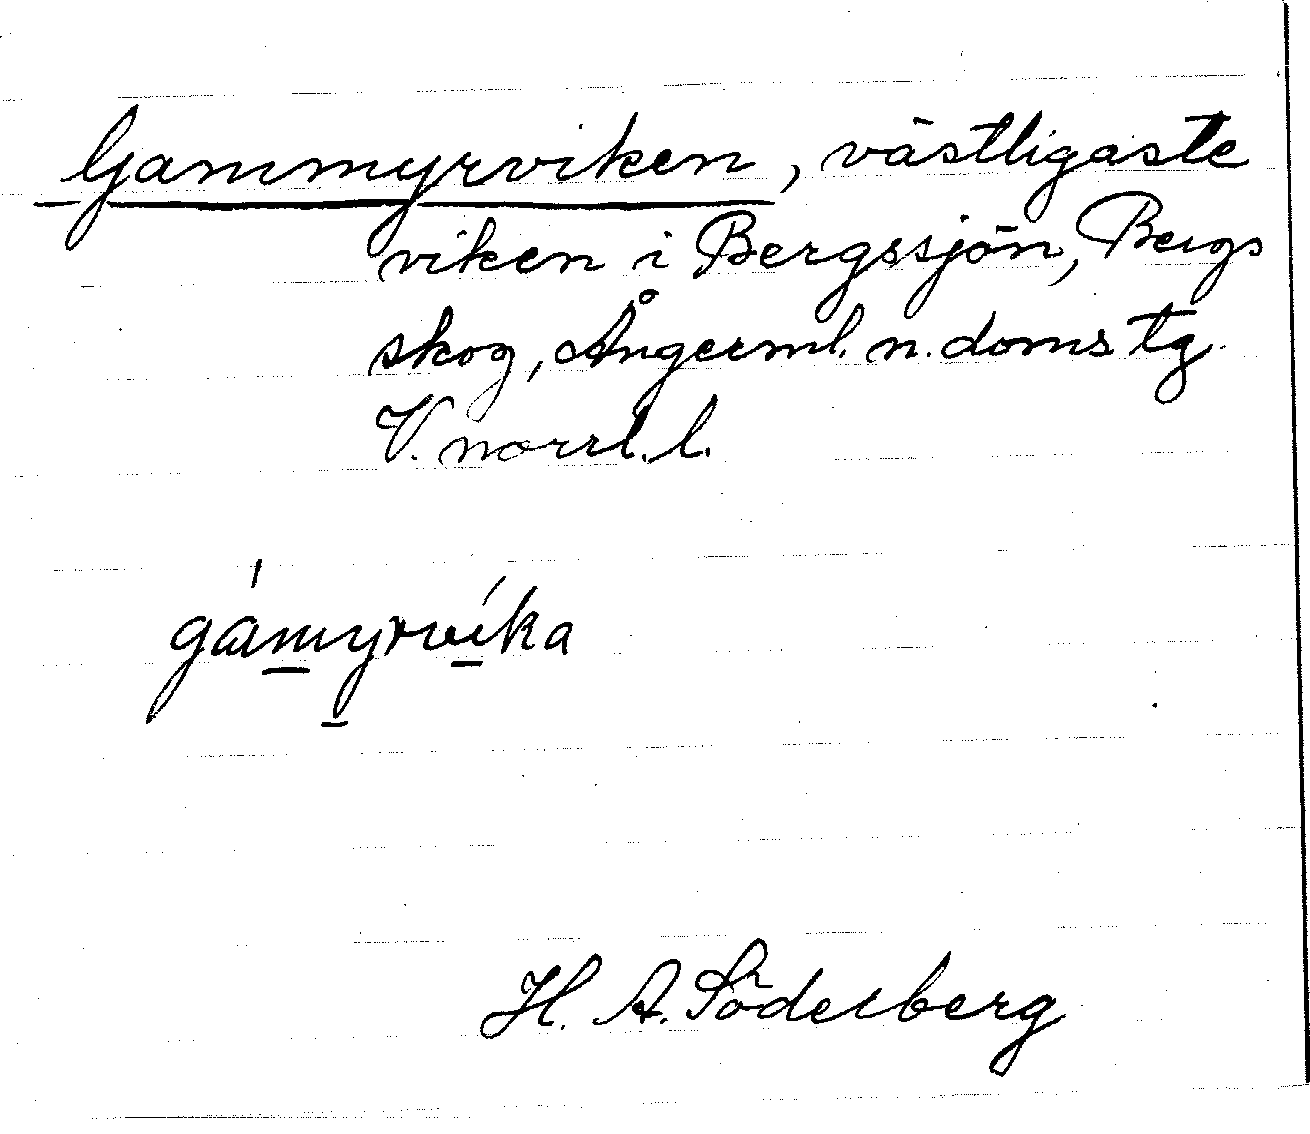 Gammyrviken, västligaste
viken i Bergssjön, Bergs
skog, Ångerml. n. doms tg.
V. norrl. l.
gámyrvíka
H. A. Söderberg